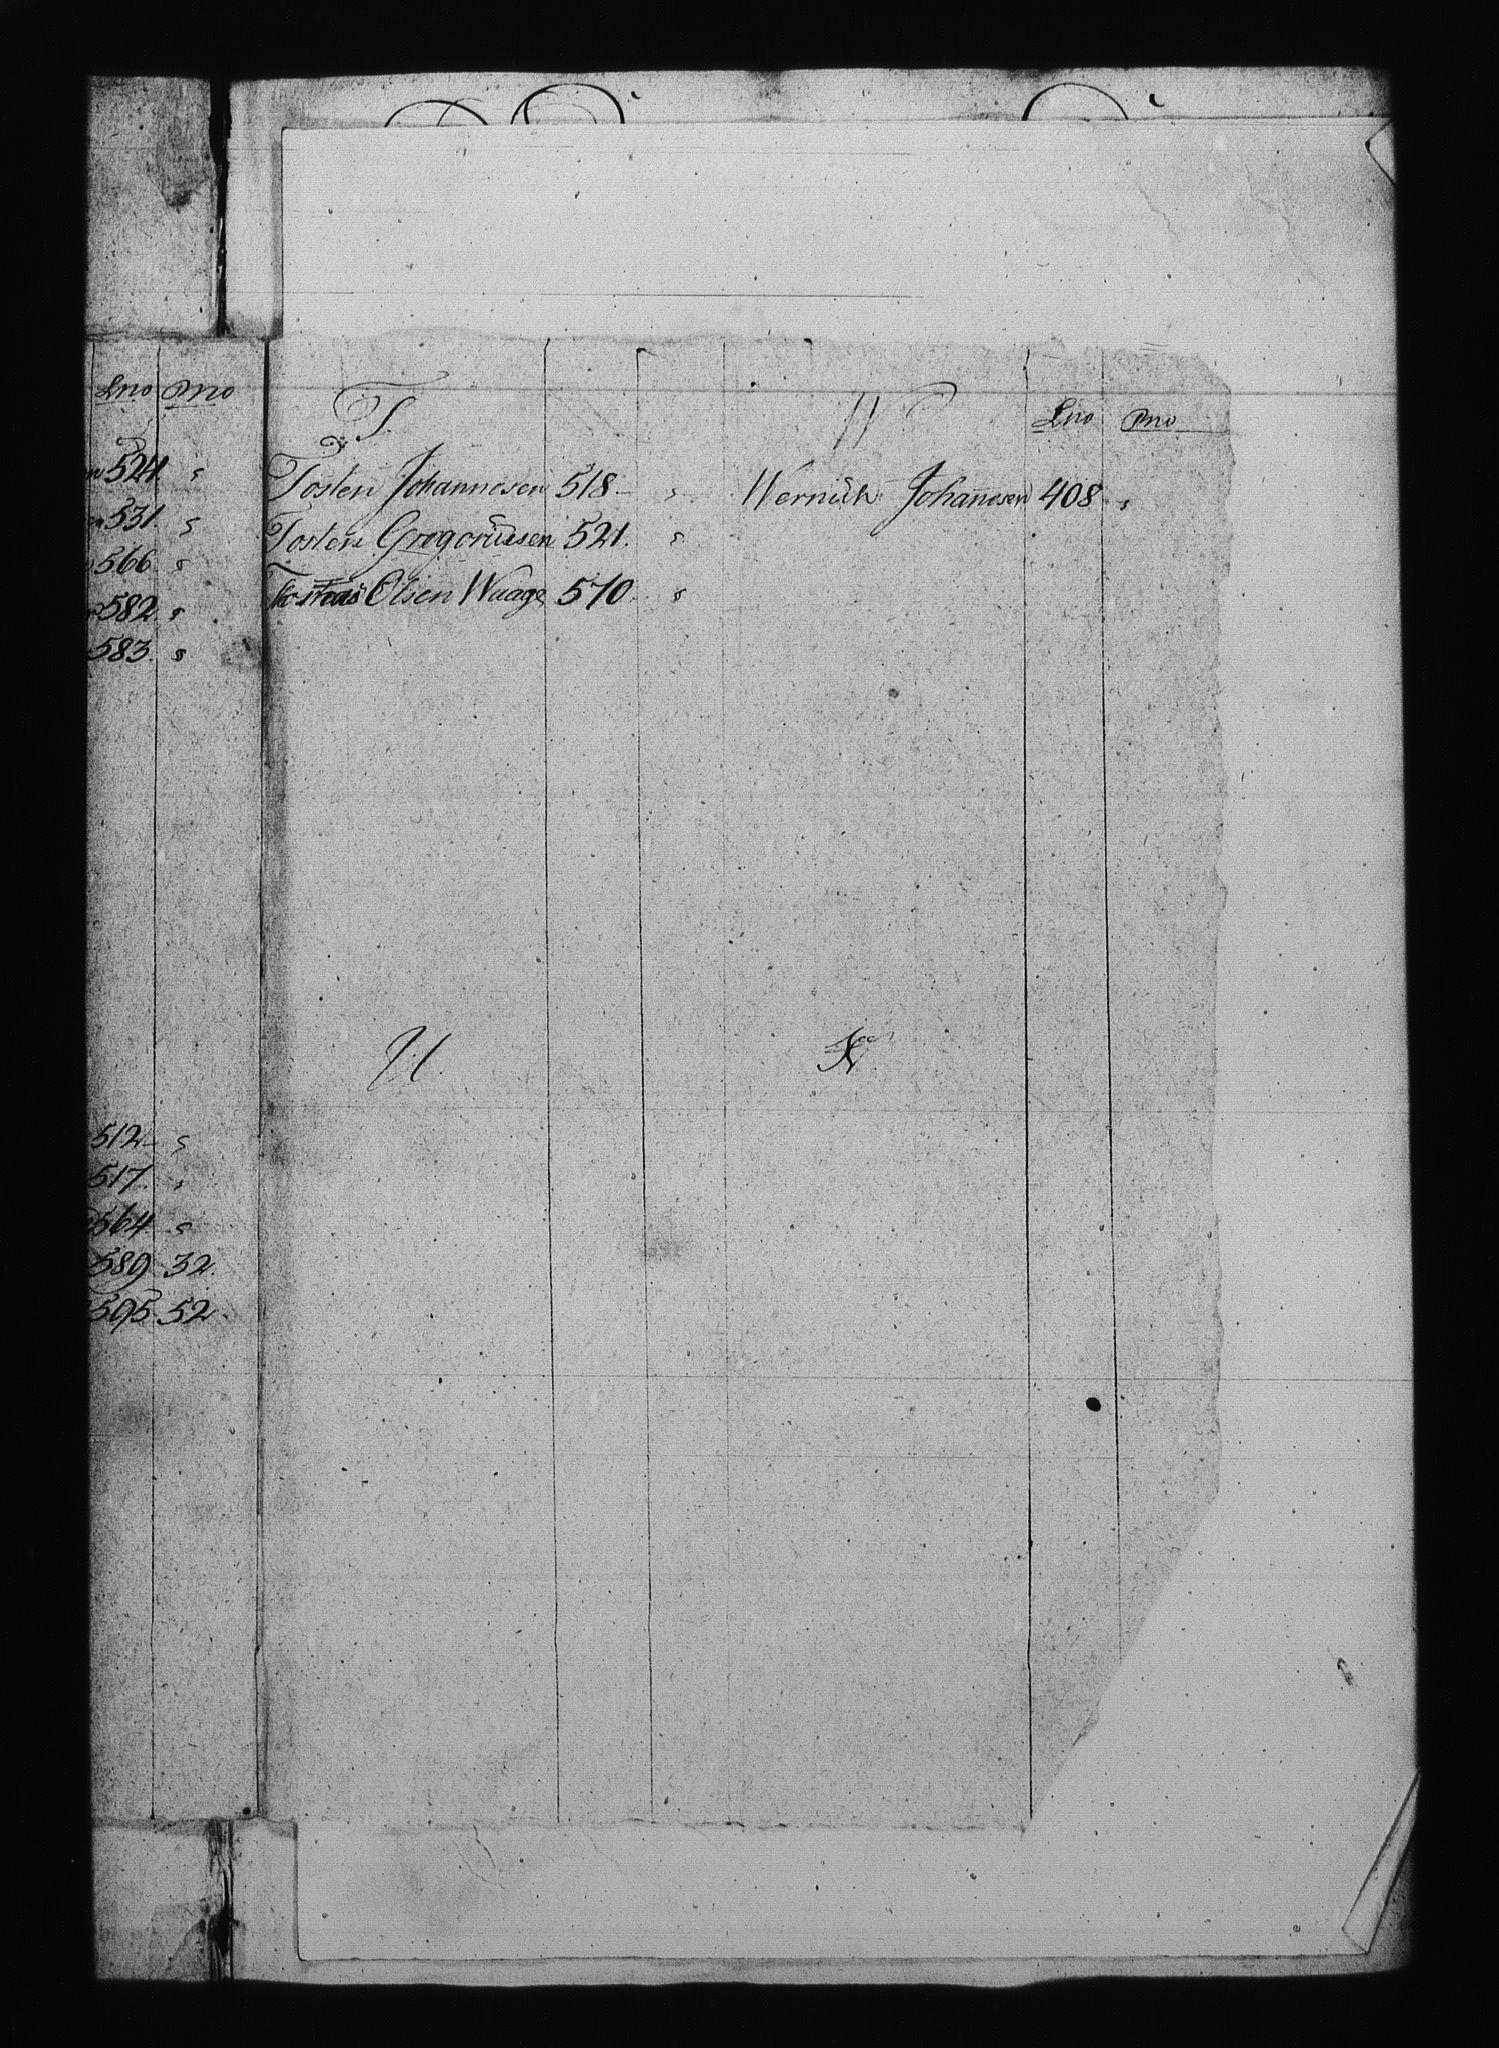 Lno Pno
524. "
531. "
566. "
582. "
583. "
512- "
517. "
564 "
589 32.
595. 52.
T.
Tosten Johannesen 518- "
Tosten Gregoriussen 521. "
Olsen Waage 570. "
U.
W Lno Pno
Wernich Johannesen 408 "
X.